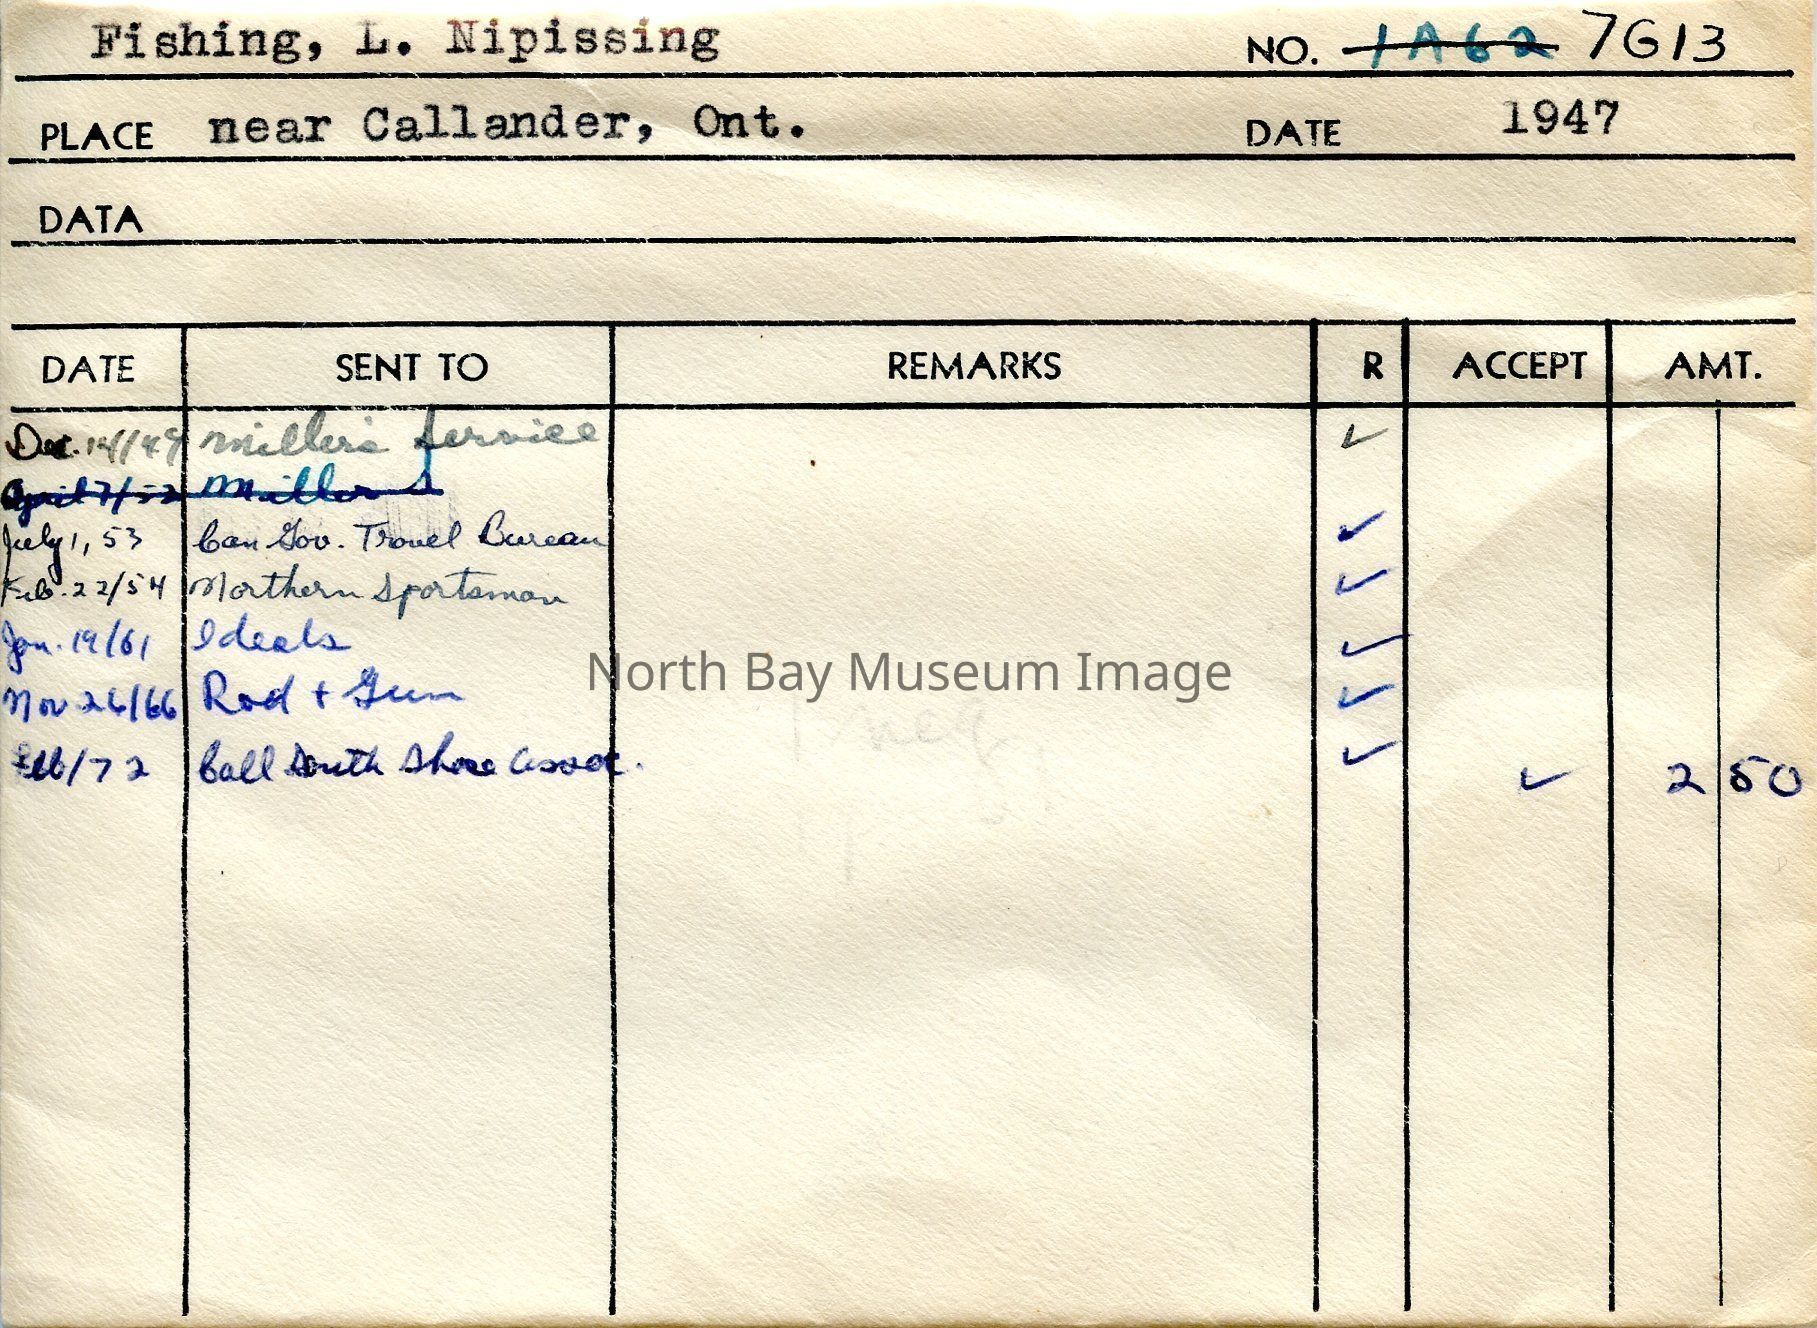 Fishing, L. Nipissing NO. 1A62 7G13
PLACE near Callander, Ont. DATE 1947
DATA
DATE SENT TO REMARKS R ACCEPT AMT.
Dec. 14/49 Miller's Service ✓
April 7/52 Millers
July 1, 53 Can Gov. Travel Bureau ✓
Feb. 22/54 Northern Sportsman ✓
Jan. 19/61 Ideals ✓
North Bay Museum Image
Nov 26/66 Rod + Gun ✓
Feb/72 Call South Shore Assoc. ✓ ✓ 2 50